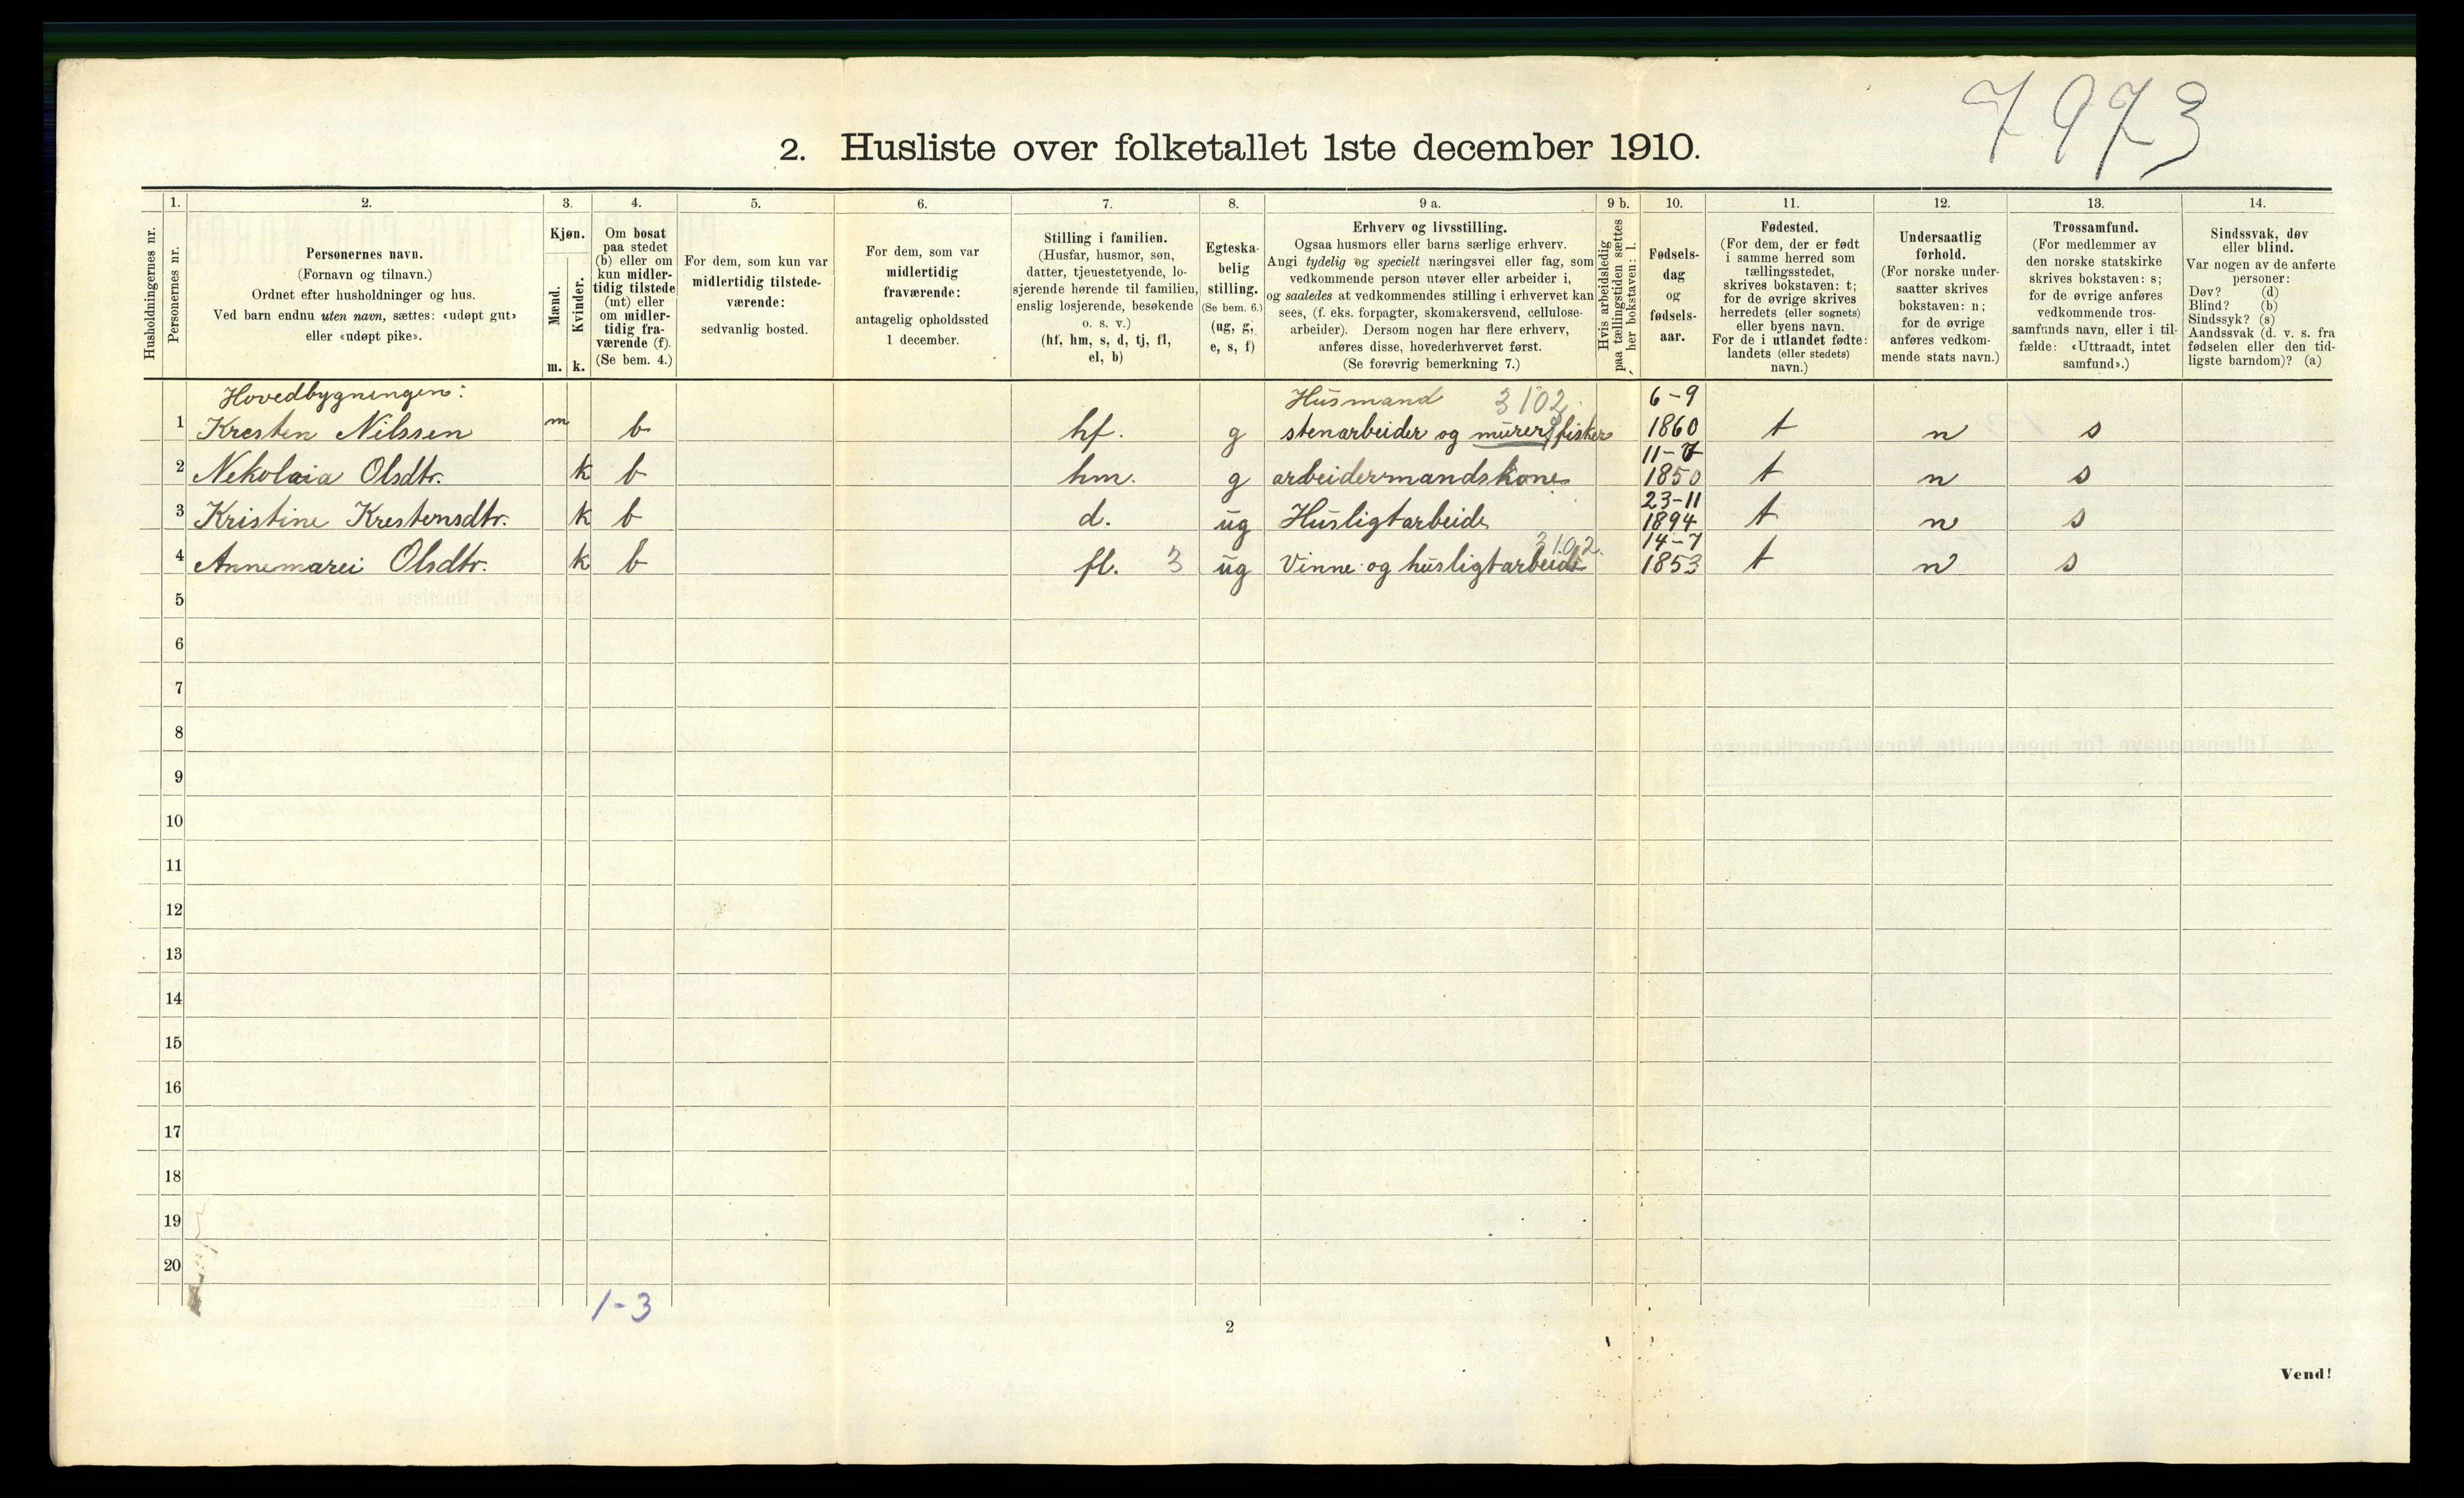 7973
2. Husliste over folketallet 1ste december 1910.
Husholdningernes nr.
1.
Personernes nr.
2.
Personernes navn.
(Fornavn og tilnavn.)
Ordnet efter husholdninger og hus.
Ved barn endnu uten navn, sættes: «udøpt gut»
eller «udøpt pike».
3.
Kjøn.
Mænd.
Kvinder.
m. k.
4.
Om bosat
paa stedet
(b) eller om
kun midler-
tidig tilstede
(mt) eller
om midler-
tidig fra-
værende (f).
(Se bem. 4.)
5.
For dem, som kun var
midlertidig tilstede-
værende:
sedvanlig bosted.
6.
For dem, som var
midlertidig
fraværende:
antagelig opholdssted
1 december.
7.
Stilling i familien.
(Husfar, husmor, søn,
datter, tjenestetyende, lo-
sjerende hørende til familien,
enslig losjerende, besøkende
o. s. v.)
(hf, hm, s, d, tj, fl,
el, b)
8.
Egteska-
belig
stilling.
(Se bem. 6.)
(ug, g,
e, s, f)
9 a.
Erhverv og livsstilling.
Ogsaa husmors eller barns særlige erhverv.
Angi tydelig og specielt næringsvei eller fag, som
vedkommende person utøver eller arbeider i,
og saaledes at vedkommendes stilling i erhvervet kan
sees, (f. eks. forpagter, skomakersvend, cellulose-
arbeider). Dersom nogen har flere erhverv,
anføres disse, hovederhvervet først.
(Se forøvrig bemerkning 7.)
9 b.
Hvis arbeidsledig
paa tællingstiden sættes
her bokstaven: l.
10.
Fødsels-
dag
og
fødsels-
aar.
11.
Fødested.
(For dem, der er født
i samme herred som
tællingsstedet,
skrives bokstaven: t;
for de øvrige skrives
herredets (eller sognets)
eller byens navn.
For de i utlandet fødte:
landets (eller stedets)
navn.)
12.
Undersaatlig
forhold.
(For norske under-
saatter skrives
bokstaven: n;
for de øvrige
anføres vedkom-
mende stats navn.)
13.
Trossamfund.
(For medlemmer av
den norske statskirke
skrives bokstaven: s;
for de øvrige anføres
vedkommende tros-
samfunds navn, eller i til-
fælde: «Uttraadt, intet
samfund».)
14.
Sindssvak, døv
eller blind.
Var nogen av de anførte
personer:
Døv? (d)
Blind? (b)
Sindssyk? (s)
Aandssvak (d. v. s. fra
fødselen eller den tid-
ligste barndom)? (a)
Hovedbygningen: Husmand 3102 6-9
1 Kresten Nilssen m b hf. g stenarbeider og murer og fisker 1860 t n s
11-7
2 Nekolaia Olsdtr. k b hm. g arbeidermandskone 1850 t n s
23-11
3 Kristine Krestensdtr. k b d. ug Husligtarbeide 1894 t n s
3102. 14-7
4 Annemarei Olsdtr. k b fl. 3 ug Vinne og husligtarbeide 1853 t n s
5
6
7
8
9
10
11
12
13
14
15
16
17
18
19
20
1-3
2
Vend!